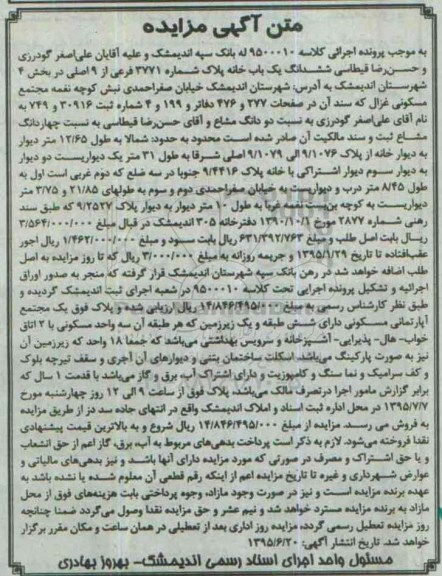 متن آگهی مزایده
به موجب پرونده اجرائی کلاسه ۹۵۰۰۰۱۰ له بانک سپه اندیمشک و علیه آقایان علی‌اصغر گودرزی
و حسن‌رضا قیطاسی ششدانگ یک باب خانه پلاک شماره ۳۷۷۱ فرعی از ۹ اصلی در بخش ۴
شهرستان اندیمشک به آدرس: شهرستان اندیمشک خیابان صفراحمدی نبش کوچه نغمه مجتمع
مسکونی غزال که سند آن در صفحات ۲۷۷ و ۴۷۶ دفاتر و ۱۹۹ و ۴ شماره ثبت ۳۰۹۱۶ و ۷۴۹ به
نام آقای علی‌اصغر گودرزی به نسبت دو دانگ مشاع و آقای حسن‌رضا قیطاسی به نسبت چهاردانگ
مشاع ثبت و سند مالکیت آن صادر شده است محدود به حدود: شمالا به طول ۱۲/۶۵ متر دیوار
به دیوار خانه از پلاک ۹/۱۰۷۶ الی ۹/۱۰۷۹ اصلی شرقا به طول ۳۱ متر یک دیواریست دو دیوار
به دیوار سوم دیوار اشتراکی با خانه پلاک ۹/۴۴۱۶ جنوبا در سه ضلع که دوم غربی است اول به
طول ۸/۴۵ متر درب و دیواریست به خیابان صفراحمدی دوم و سوم به طولهای ۲۱/۸۵ و ۳/۷۵ متر
دیواریست به کوچه بن‌بست نغمه غربا به طول ۱۰ متر دیوار به دیوار پلاک ۹/۲۵۲۷ که طبق سند
رهنی شماره ۲۸۷۷ مورخ ۱۳۹۰/۱۰/۱ دفترخانه ۳۰۵ اندیمشک در قبال مبلغ ۳/۵۶۴/۰۰۰/۰۰۰
ریال بابت اصل طلب و مبلغ ۶۳۱/۲۹۲/۷۶۳ ریال بابت سود و مبلغ ۱/۴۶۲/۰۰۰/۰۰۰ ریال اجور
عقب‌افتاده تا تاریخ ۱۳۹۵/۱/۲۹ و جریمه روزانه به مبلغ ۳/۰۰۰/۰۰۰ ریال که تا روز مزایده به اصل
طلب اضافه خواهد شد در رهن بانک سپه شهرستان اندیمشک قرار گرفته که منجر به صدور اوراق
اجرائیه و تشکیل پرونده اجرایی تحت کلاسه ۹۵۰۰۰۱۰ در شعبه اجرای ثبت اندیمشک گردیده و
طبق نظر کارشناس رسمی به مبلغ ۱۴/۸۴۶/۴۹۵/۰۰۰ ریال ارزیابی شده و پلاک فوق یک مجتمع
آپارتمانی مسکونی دارای شش طبقه و یک زیرزمین که هر طبقه آن سه واحد مسکونی با ۲ اتاق
خواب- هال- پذیرایی- آشپزخانه و سرویس بهداشتی می‌باشد که جمعا ۱۸ واحد که زیرزمین آن
نیز به صورت پارکینگ می‌باشد. اسکلت ساختمان بتنی و دیوارهای آن آجری و سقف تیرچه بلوک
و کف سرامیک و نما سنگ و کامپوزیت و دارای اشتراک آب، برق و گاز می‌باشد با قدمت ۱ سال که
برابر گزارش مامور اجرا درتصرف مالک می‌باشد، پلاک فوق از ساعت ۹ الی ۱۲ روز چهارشنبه مورخ
۱۳۹۵/۷/۷ در محل اداره ثبت اسناد و املاک اندیمشک واقع در انتهای جاده سد دز از طریق مزایده
به فروش می رسد. مزایده از مبلغ ۱۴/۸۴۶/۴۹۵/۰۰۰ ریال شروع و به بالاترین قیمت پیشنهادی
نقدا فروخته می‌شود. لازم به ذکر است پرداخت بدهی‌های مربوط به آب، برق، گاز اعم از حق انشعاب
و یا حق اشتراک و مصرف در صورتی که مورد مزایده دارای آنها باشد و نیز بدهی‌های مالیاتی و
عوارض شهرداری و غیره تا تاریخ مزایده اعم از اینکه رقم قطعی آن معلوم شده یا نشده باشد به
عهده برنده مزایده است و نیز در صورت وجود مازاد، وجوه پرداختی بابت هزینه‌های فوق از محل
مازاد به برنده مزایده مسترد خواهد شد و نیم عشر و حق مزایده نقدا وصول می‌گردد ضمنا چنانچه
روز مزایده تعطیل رسمی گردد، مزایده روز اداری بعد از تعطیلی در همان ساعت و مکان مقرر برگزار
خواهد شد. تاریخ انتشار آگهی: ۱۳۹۵/۶/۲۰
مسئول واحد اجرای اسناد رسمی اندیمشک- بهروز بهادری